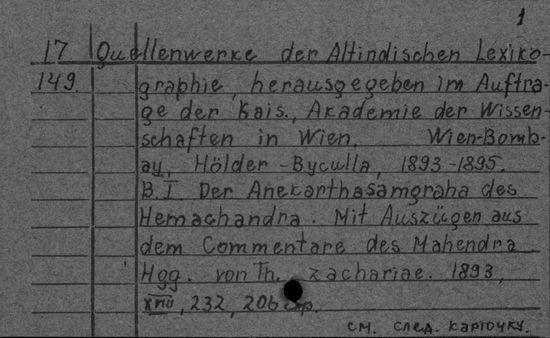 1
17 Quellenwerke der Altindischen Lexiko-
149. graphie, herausgegeben im Auftra-
ge der Kais., Akademie der Wissen-
schaften in Wien. Wien-Bomb-
ay, Hölder-Byculla, 1893-1895.
B.I Der Anekarthasamgraha des
Hemachandra. Mit Auszügen aus
dem Commentare des Mahendra
Hgg. von Th. Zachariae. 1893,
XVIII, 232, 206 стр.
см. след. карточку.